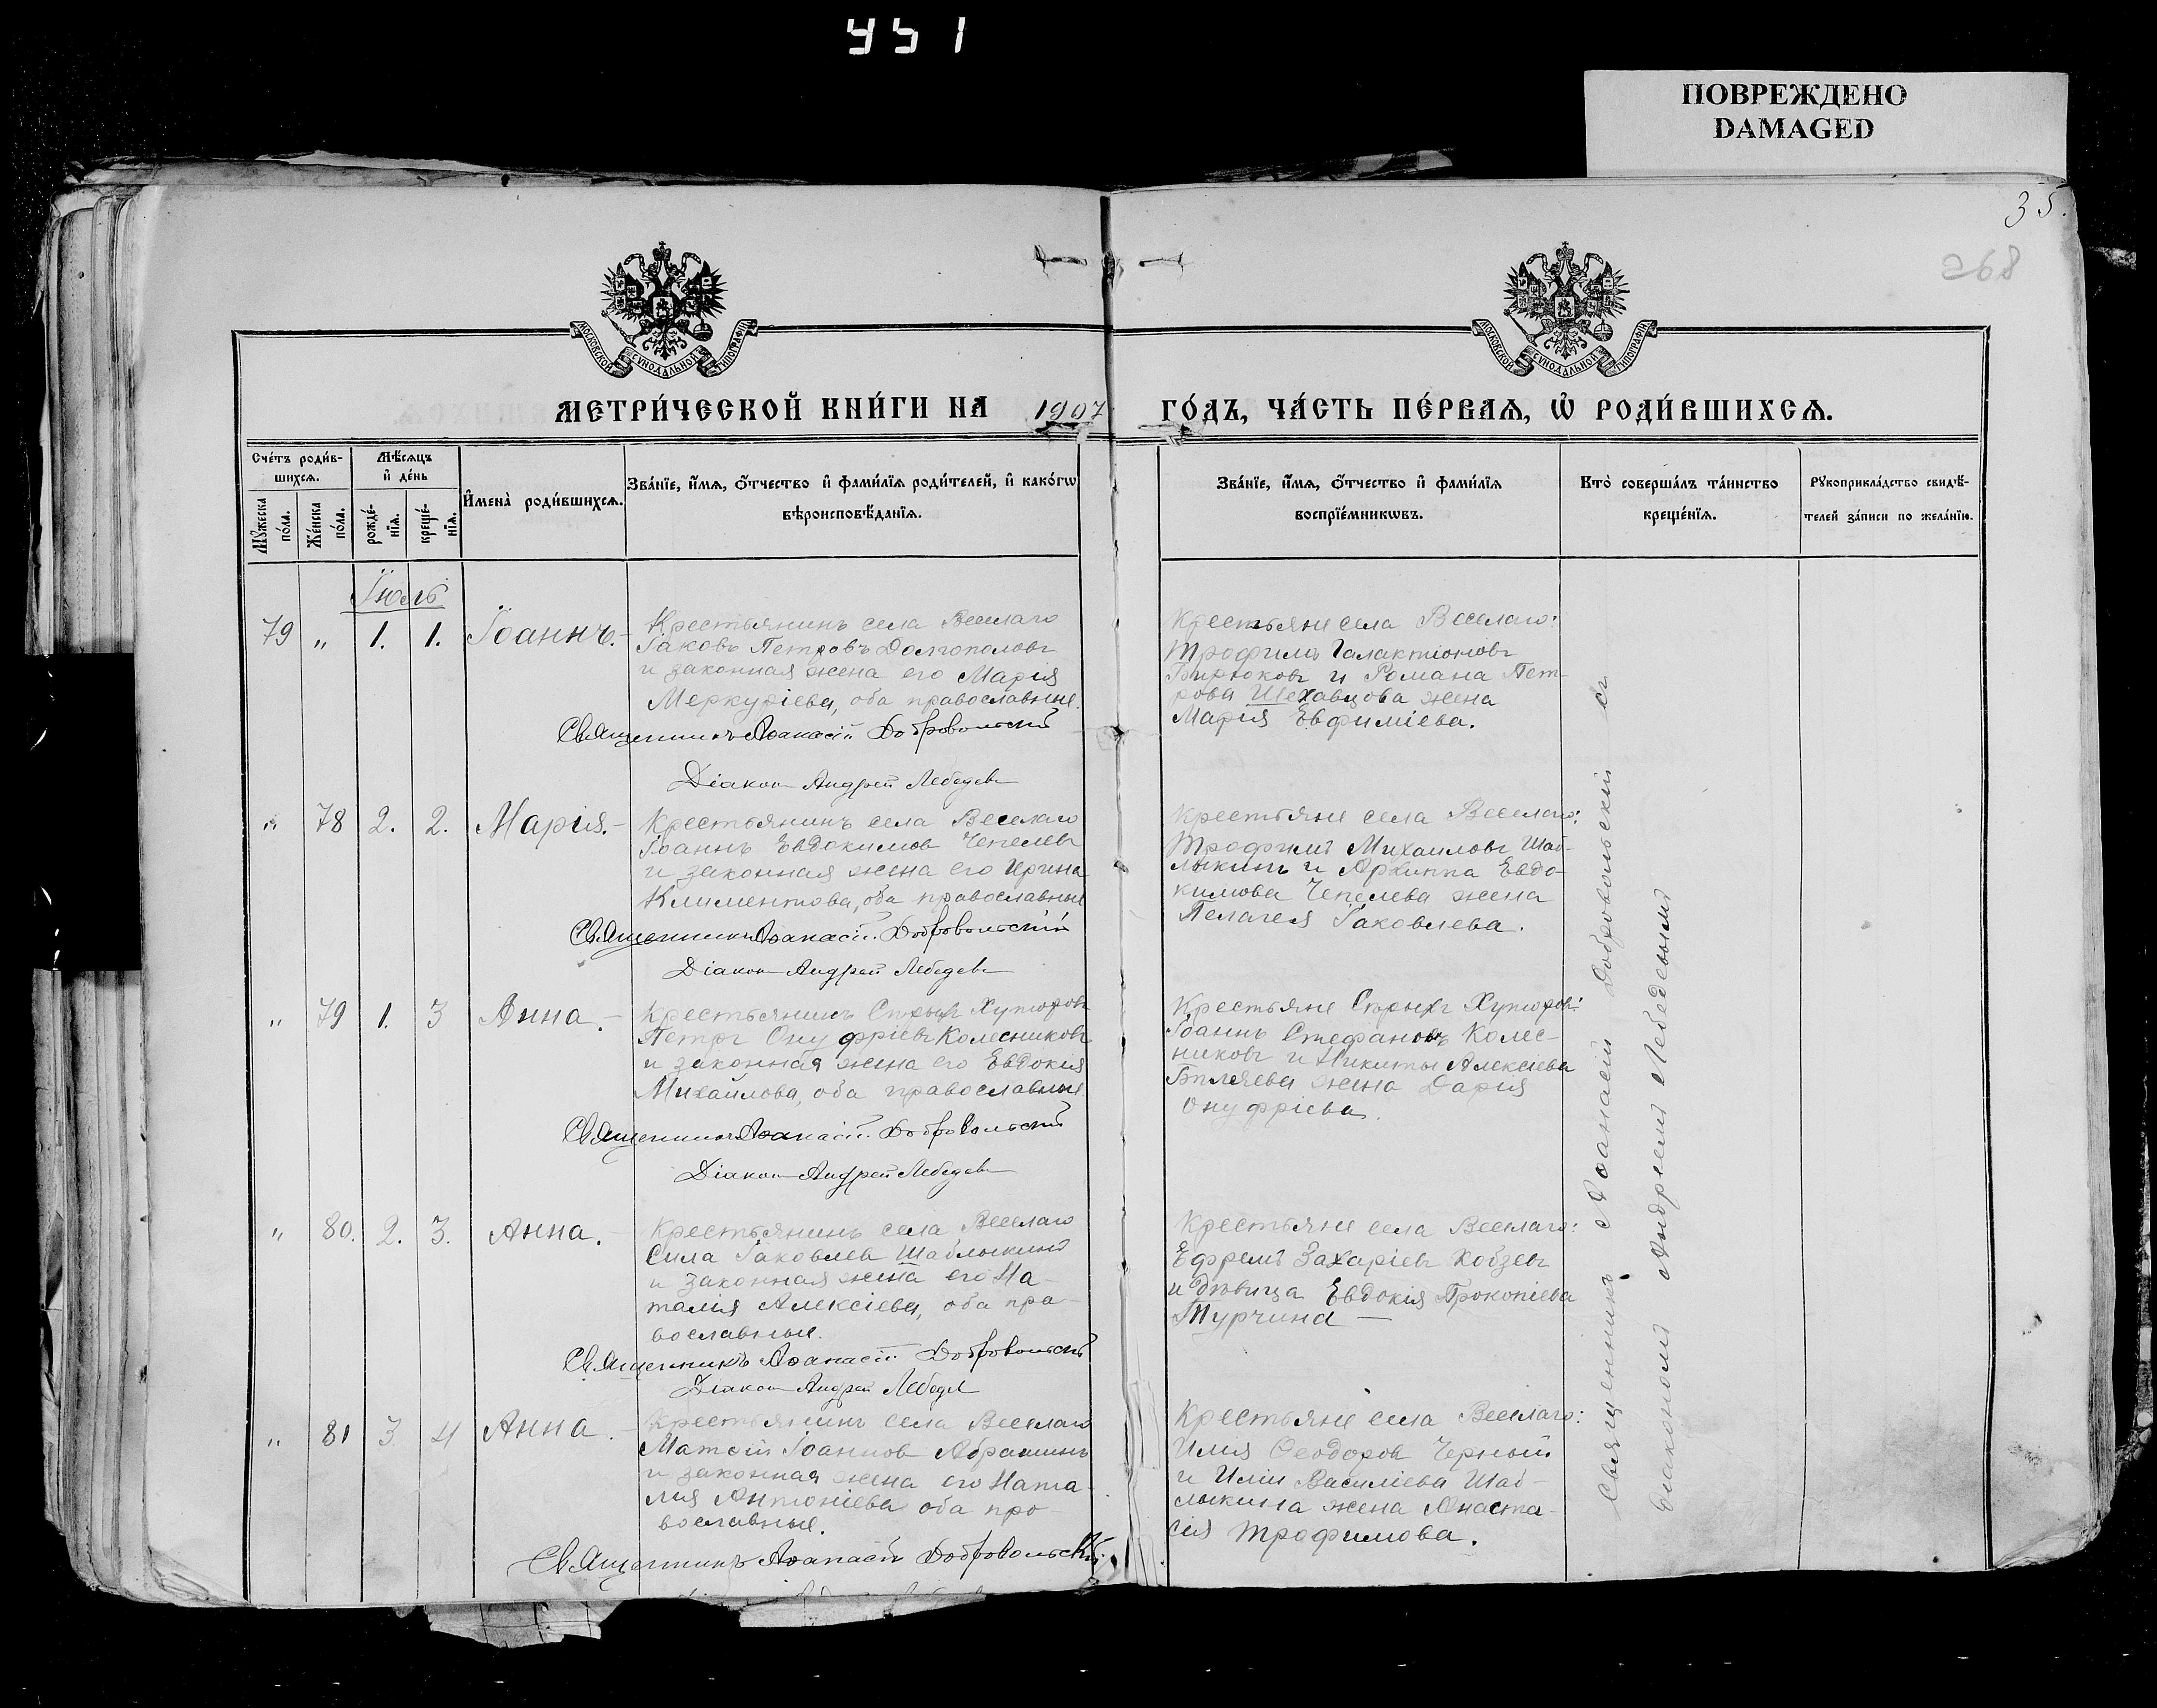 451
ПОВРЕЖДЕНО
DAMAGED
35.
268
МОСКОВСКОЙ СУНОДАЛЬНОЙ ТИПОГРАФІИ
МОСКОВСКОЙ СУНОДАЛЬНОЙ ТИПОГРАФІИ
МЕТРИ́ЧЕСКОЙ КНИ́ГИ НА 1907 ГО́ДЪ, ЧА́СТЬ ПЕ́РВАѦ, Ѡ҆ РОДИ́ВШИХСѦ.
Сче́тъ роди́в-
шихсѧ.
Мꙋ́жеска по́ла.
Же́нска по́ла.
Мѣ́сѧцъ
и҆ де́нь
рожде́-
нїѧ.
креще́-
нїѧ.
И҆мена̀ роди́вшихсѧ.
Зва́нїе, и҆́мѧ, ѻ҆́тчество и҆ фами́лїѧ роди́телей, и҆ како́гѡ
вѣроисповѣ́данїѧ.
Зва́нїе, и҆́мѧ, ѻ҆́тчество и҆ фами́лїѧ
воспрїе́мникѡвъ.
Кто̀ соверша́лъ та́инство
креще́нїѧ.
Рꙋкоприкла́дство свидѣ́-
телей за́писи по жела́нїю.
Іюль
79 „ 1. 1. Іоаннъ.-
Крестьянинъ села Веселаго
Іаковъ Петровъ Долгополовъ
и законная жена его Марія
Меркуріева, оба православные.
Священникъ Аѳанасій Добровольскій
Діаконъ Андрей Лебедевъ
Крестьяне села Веселаго:
Трофимъ Галактіоновъ
Бирюковъ и Романа Пет-
рова Шеховцова жена
Марія Евфиміева.
„ 78 2. 2. Марія.-
Крестьянинъ села Веселаго
Іоаннъ Евдокимовъ Чепелевъ
и законная жена его Ирина
Климентова, оба православные
Священникъ Аѳанасій Добровольскій
Діаконъ Андрей Лебедевъ
Крестьяне села Веселаго:
Трофимъ Михаиловъ Шаб-
лыкинъ и Архиппа Евдо-
кимова Чепелева жена
Пелагея Іаковлева.
„ 79 1. 3 Анна.-
Крестьянинъ Хуторовъ
Петръ Онуфріевъ Колесниковъ
и законная жена его Евдокія
Михайлова, оба православные
Священникъ Аѳанасій Добровольскій
Діаконъ Андрей Лебедевъ
Крестьяне Хуторовъ:
Іоаннъ Стефановъ Колес-
никовъ и Никиты Алексіева
Бѣляева жена Дарія
Онуфріева.
„ 80. 2. 3. Анна.-
Крестьянинъ села Веселаго
Сила Іаковлевъ Шаблыкинъ
и законная жена его На-
талія Алексіева, оба пра-
вославные.
Священникъ Аѳанасій Добровольскій
Діаконъ Андрей Лебедев
Крестьяне села Веселаго:
Ефремъ Захаріевъ Кобзевъ
и дѣвица Евдокія Прокопіева
Турчина —
„ 81 3. 4 Анна.-
Крестьянинъ села Веселаго
Матѳій Іоанновъ Абрамкинъ
и законная жена его Ната-
лія Антоніева оба про-
вославные.
Священникъ Аѳанасій Добровольскій.
Крестьяне села Веселаго:
Илія Ѳеодоровъ Черный
и Иліи Василіева Шаб-
лыкина жена Анаста-
сія Трофимова.
Священникъ Аѳанасій Добровольскій съ
діакономъ Андреемъ Лебедевымъ